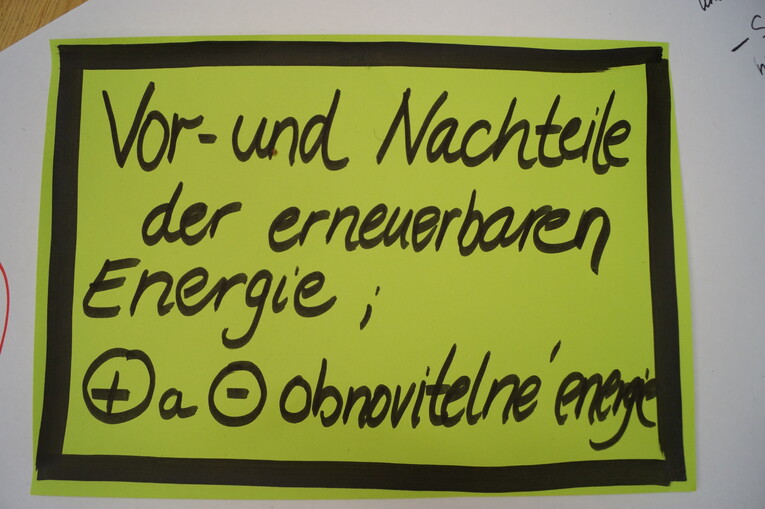 Vor- und Nachteile
der erneuerbaren
Energie;
⊕ a ⊖ obnovitelné energie